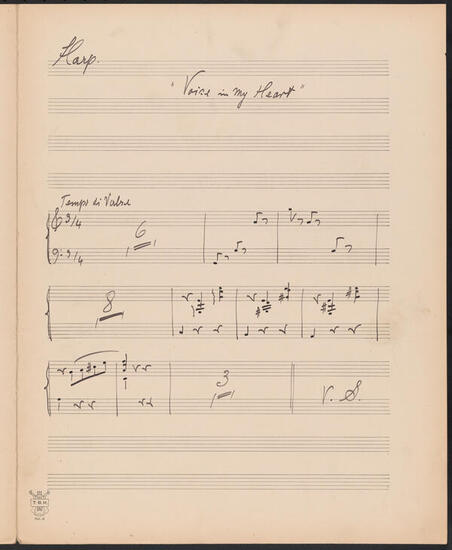 Harp.
"Voice in my Heart"
Tempo di Valse
3/4
6
3/4
8
3
V. S.
T.B.H.